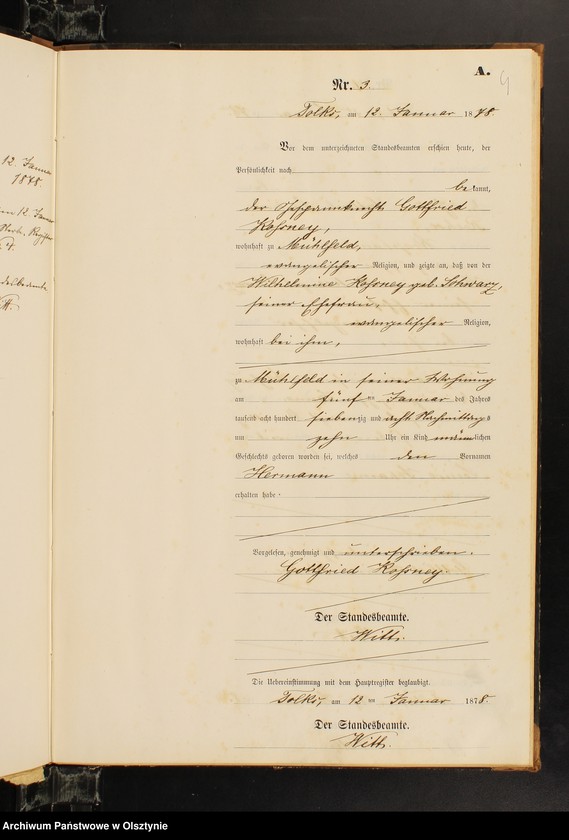 12. Januar
1878
A.
Nr. 3.
Tolks, am 12. Januar 1878.
Vor dem unterzeichneten Standesbeamten erschien heute, der
Persönlichkeit nach
bekannt,
der Gottfried
wohnhaft zu Mühlfeld,
evangelischer Religion, und zeigte an, daß von der
Wilhelmine geb. Schwarz,
seiner Ehefrau,
evangelischer Religion,
wohnhaft bei ihm,
zu Mühlfeld in seiner Wohnung
am fünf ten Januar des Jahres
tausend acht hundert siebenzig und acht Nachmittags
um zehn Uhr ein Kind männlichen
Geschlechts geboren worden sei, welches den Vornamen
Hermann
erhalten habe.
Vorgelesen, genehmigt und unterschrieben.
Gottfried
Der Standesbeamte.
Witt.
Die Uebereinstimmung mit dem Hauptregister beglaubigt.
Tolks, am 12 ten Januar 1878.
Der Standesbeamte.
Witt.
Archiwum Państwowe w Olsztynie